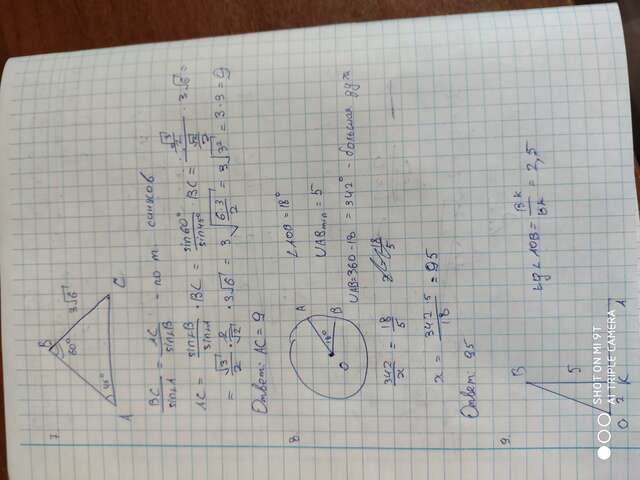 7.
B
60°
3√6
45°
A
C
BC/sin∠A = AC/sin∠B - по т. синусов
AC = sin∠B/sin∠A · BC = sin60°/sin45° · BC = (√3/2)/(√2/2) · 3√6 =
= √3/2 · 2/√2 · 3√6 = 3√(6·3/2) = 3√3² = 3·3 = 9
Ответ: AC = 9
8.
A
B
O
18°
∠AOB = 18°
∪ABmin = 5
∪AB = 360 - 18 = 342° - большая дуга
342/x = 18/5
x = 342·5/18 = 95
Ответ: 95
9.
B
5
O 2 K
tg∠AOB = BK/ = 2,5
SHOT ON MI 9T
AI TRIPLE CAMERA